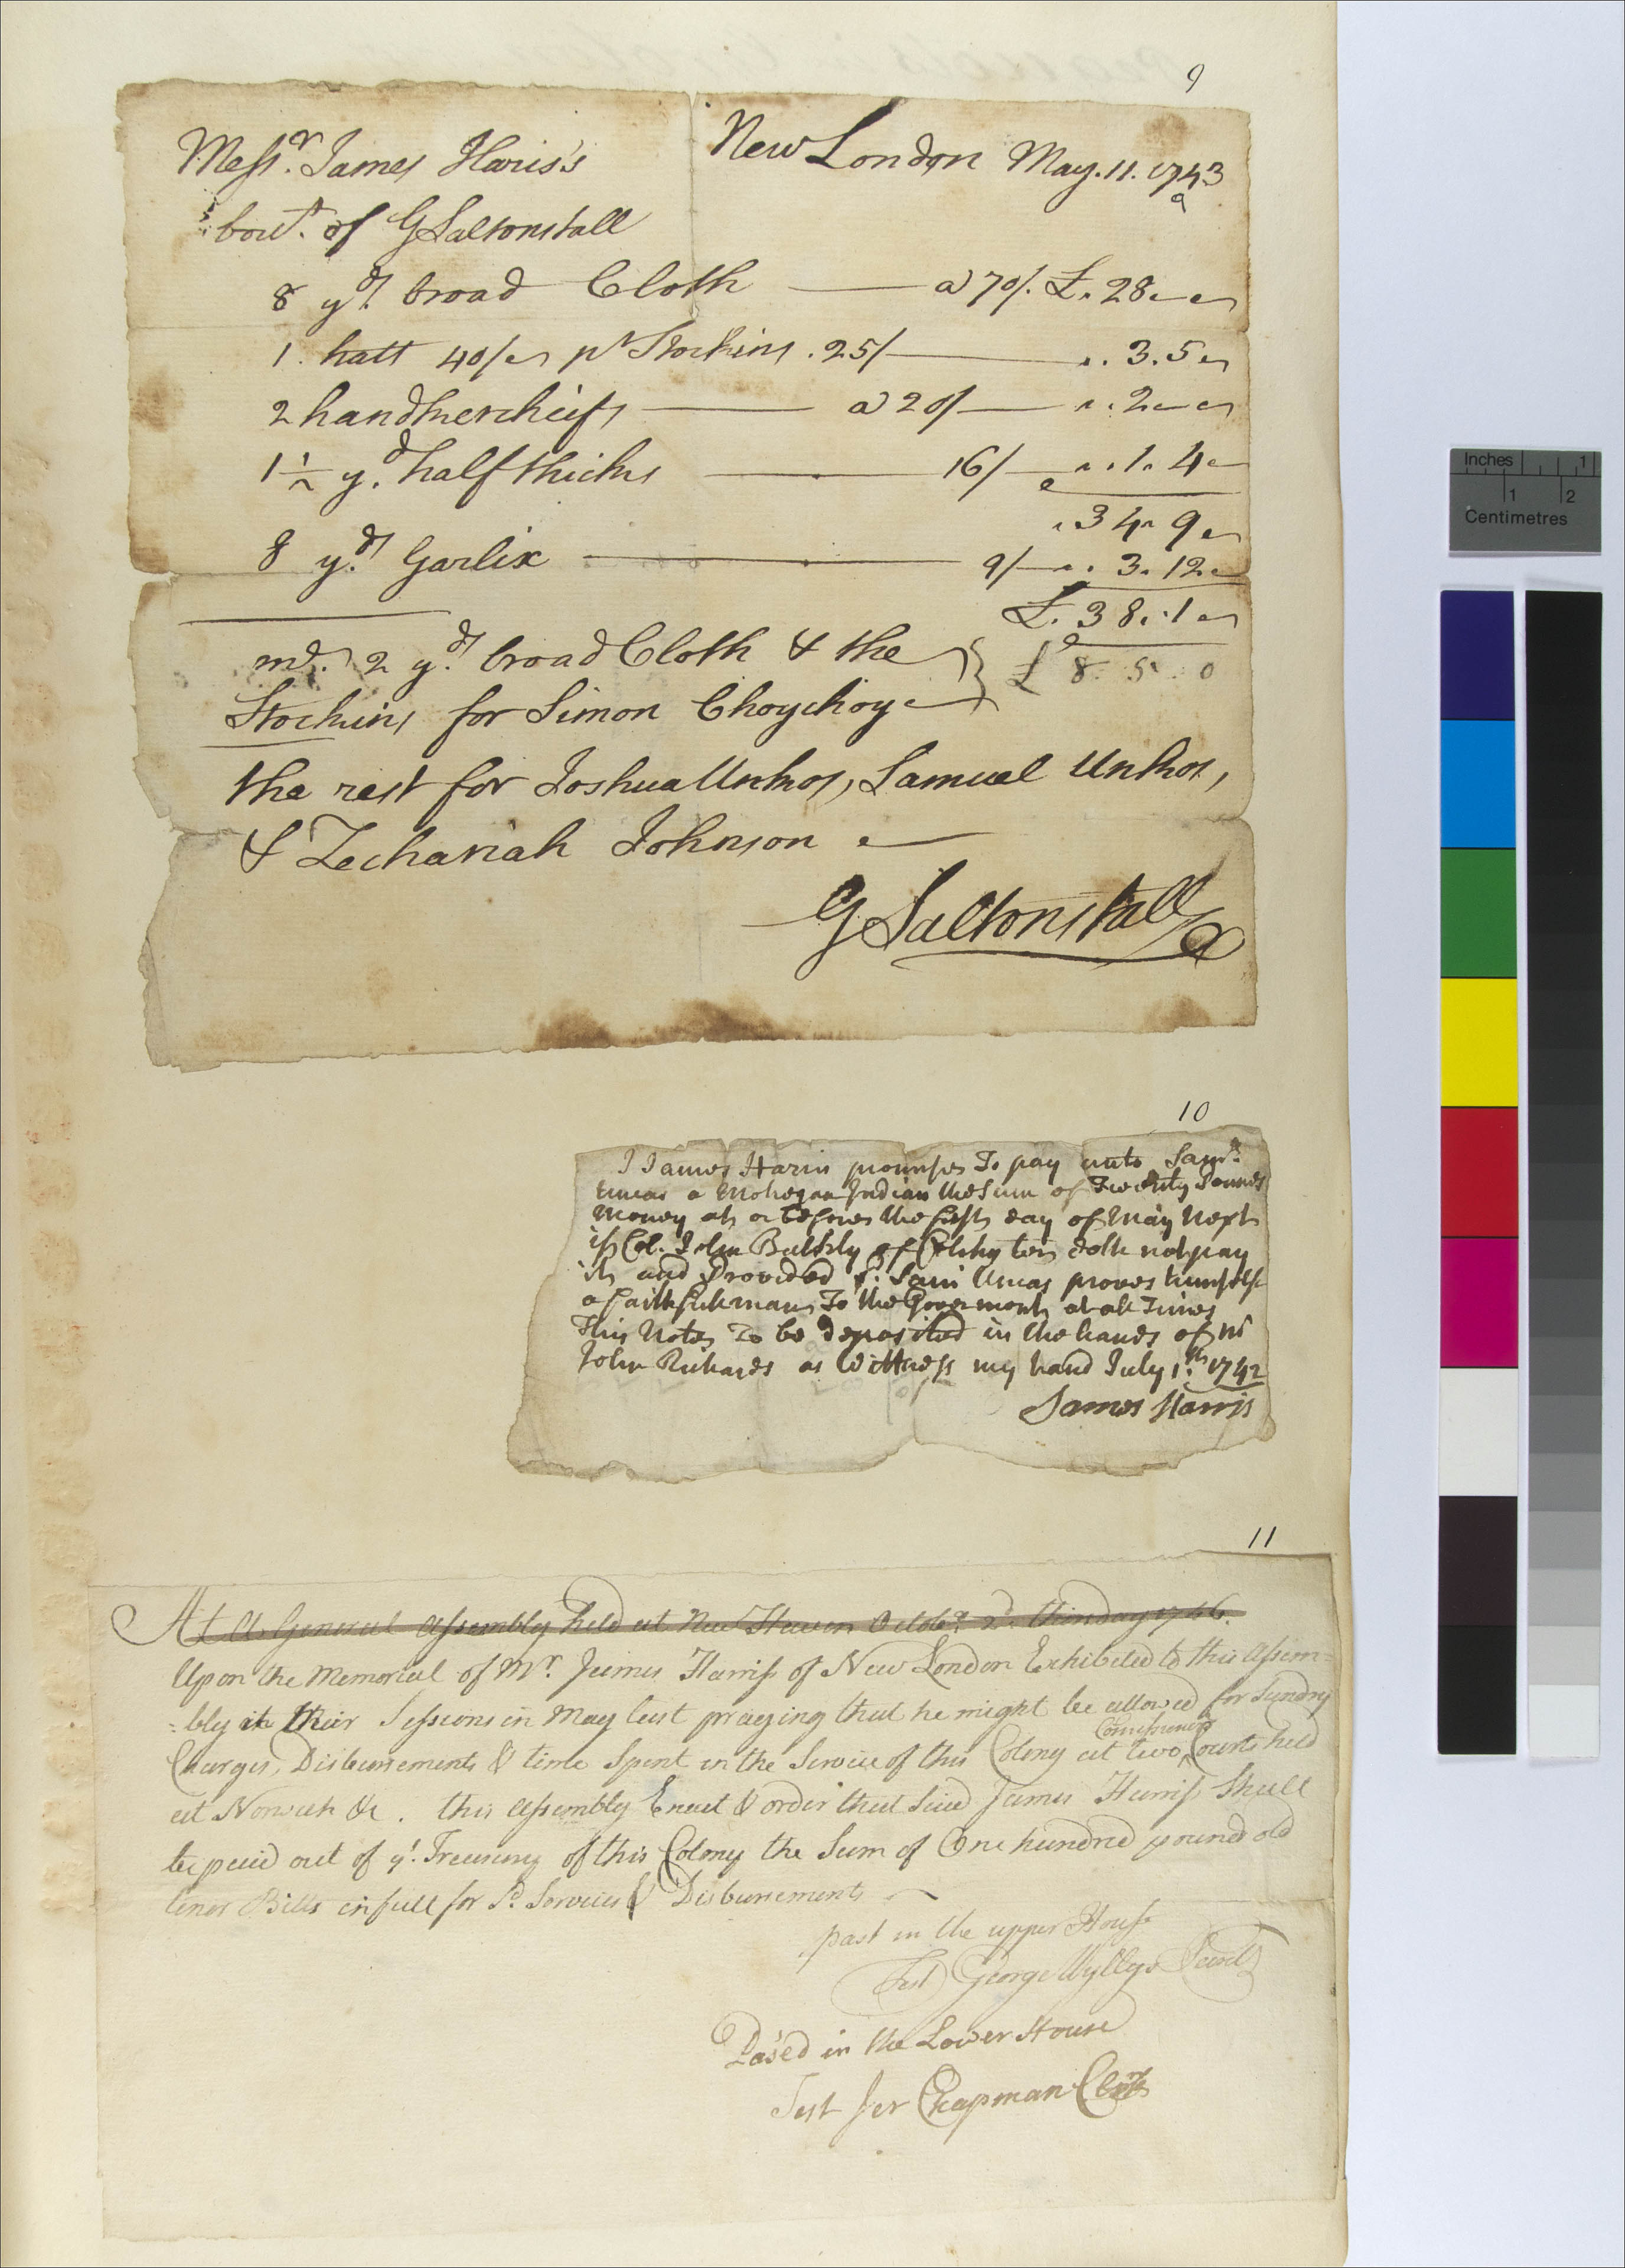 9
Messr. James Haris's New London May. 11. 1743
9
bout. of GSaltonstall
8 yds. broad Cloth — a) 70/. £. 28.
1. hatt 40/ pr Stockins. 25/ — 3. 5
2 handkercheifs — a) 20/ — 2
1½ yd. half thicks — 16/ — 1. 4
34. 9
8 yds. Garlix — 9/ — 3. 12
£. 38. 1
md. 2 yds. broad Cloth & the } £ 8. 5. 0
Stockins for Simon Choychoy
the rest for Joshua Unkos, Samuel Unkos,
& Zechariah Johnson
GSaltonstall
10
I James Haris promises To pay unto Samll
Uncas a Mohegan Indian the Sum of Twenty Pounds
money at or before the first day of May Next
if Col. John Bulkly of Colchester doth not pay
it and Provided sd. Sam Uncas proves himself
a faithfull man To the Goverment at all Times
This Note To be deposited in the hands of Mr
John Richards as Wittness my hand July 1st 1742
James Harris
11
At a General Assembly held at New Haven Octobr. 2d. thursday 1746.
Upon the Memorial of Mr. James Harriss of New London Exhibited to this Assem=
=bly in their Sessions in May last praying that he might be allowed for Sundry
Commissioners
Charges, Disbursements & time Spent in the Service of this Colony at two Courts held
at Norwich &c. this Assembly Enact & order that Said James Harriss Shall
be paid out of ye. Treasury of this Colony the Sum of One hundred pound old
tenor Bills in full for sd. Services & Disbursements
past in the upper House
Test George Wyllys Secrety
Passed in the Lower House
Test Jer Chapman Clerk
Inches 1
1 2
Centimetres